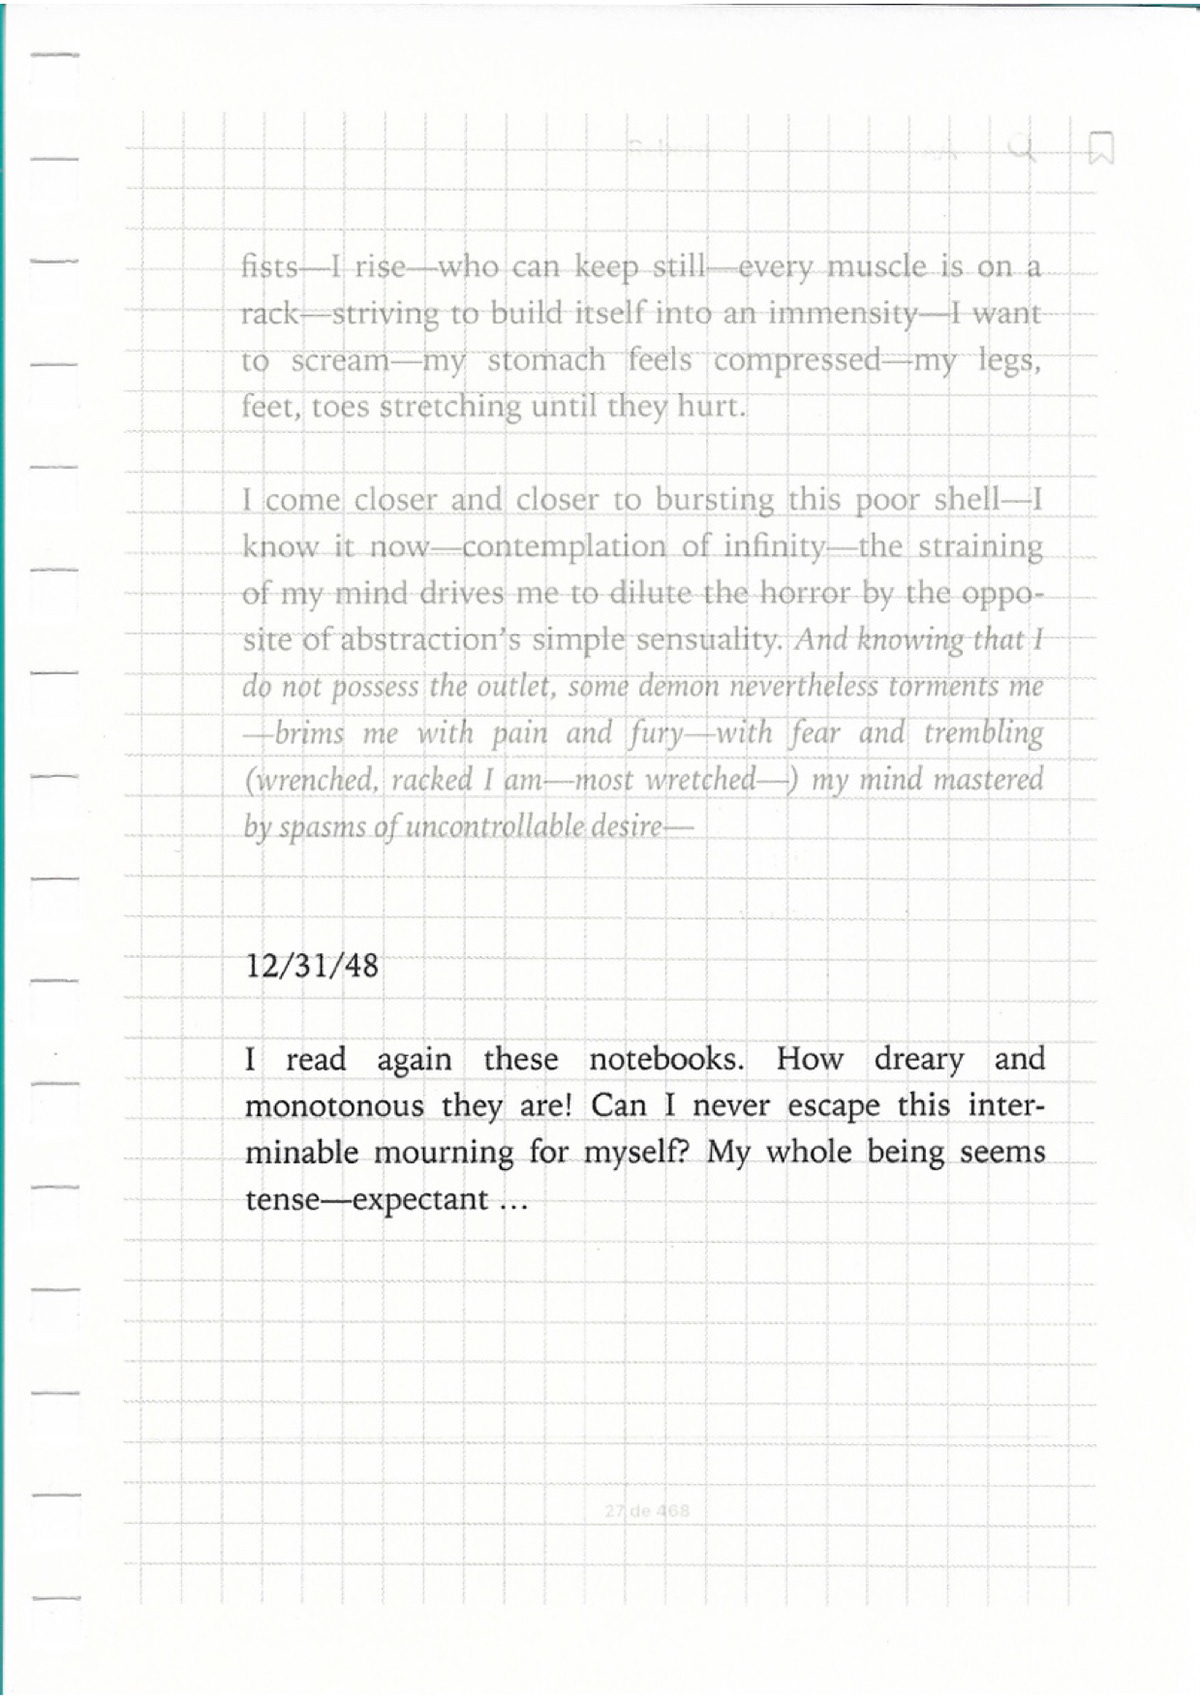 fists—I rise—who can keep still—every muscle is on a
rack—striving to build itself into an immensity—I want
to scream—my stomach feels compressed—my legs,
feet, toes stretching until they hurt.
I come closer and closer to bursting this poor shell—I
know it now—contemplation of infinity—the straining
of my mind drives me to dilute the horror by the oppo-
site of abstraction’s simple sensuality. And knowing that I
do not possess the outlet, some demon nevertheless torments me
—brims me with pain and fury—with fear and trembling
(wrenched, racked I am—most wretched—) my mind mastered
by spasms of uncontrollable desire—
12/31/48
I read again these notebooks. How dreary and
monotonous they are! Can I never escape this inter-
minable mourning for myself? My whole being seems
tense—expectant …
27 de 468